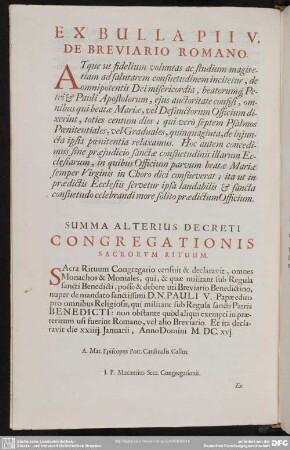 EX BULLA PII V.
DE BREVIARIO ROMANO.
ATque ut fidelium voluntas ac studium magis e-
tiam ad salutarem consuetudinem incitetur, de
omnipotentis Dei misericordia, beatorumq; Pe-
tri & Pauli Apostolorum, ejus auctoritate confisi, om-
nibus qui beatæ Mariæ, vel Defunctorum Officium di-
xerint, toties centum dies; qui verò septem Psalmos
Pœnitentiales, vel Graduales, quinquaginta, de injun-
cta ipsis pœnitentia relaxamus. Hoc autem concedi-
mus sine præjudicio sanctæ consuetudinis illarum Ec-
clesiarum, in quibus Officium parvum beatæ Mariæ
semper Virginis in Choro dici consueverat; ita ut in
prædictis Ecclesiis servetur ipsa laudabilis & sancta
consuetudo celebrandi more solito prædictum Officium.
SUMMA ALTERIUS DECRETI
CONGREGATIONIS
SACRORVM RITUUM.
SAcra Rituum Congregatio censuit & declaravit, omnes
Monachos & Moniales, qui, & quæ militant sub Regula
sancti Benedicti, posse & debere uti Breviario Benedictino,
nuper de mandato sanctissimi D.N. PAULI V. Papæ edito
pro omnibus Religiosis, qui militant sub Regula sancti Patris
BENEDICTI: non obstante quòd aliqui exempti in præ-
teritum usi fuerint Romano, vel alio Breviario. Et ita decla-
ravit die xxiiij Januarii, Anno Domini M DC. xvj.
A. Mar. Episcopus Port. Cardinalis Gallus.
I. P. Mucantius Secr. Congregationis.
Ex